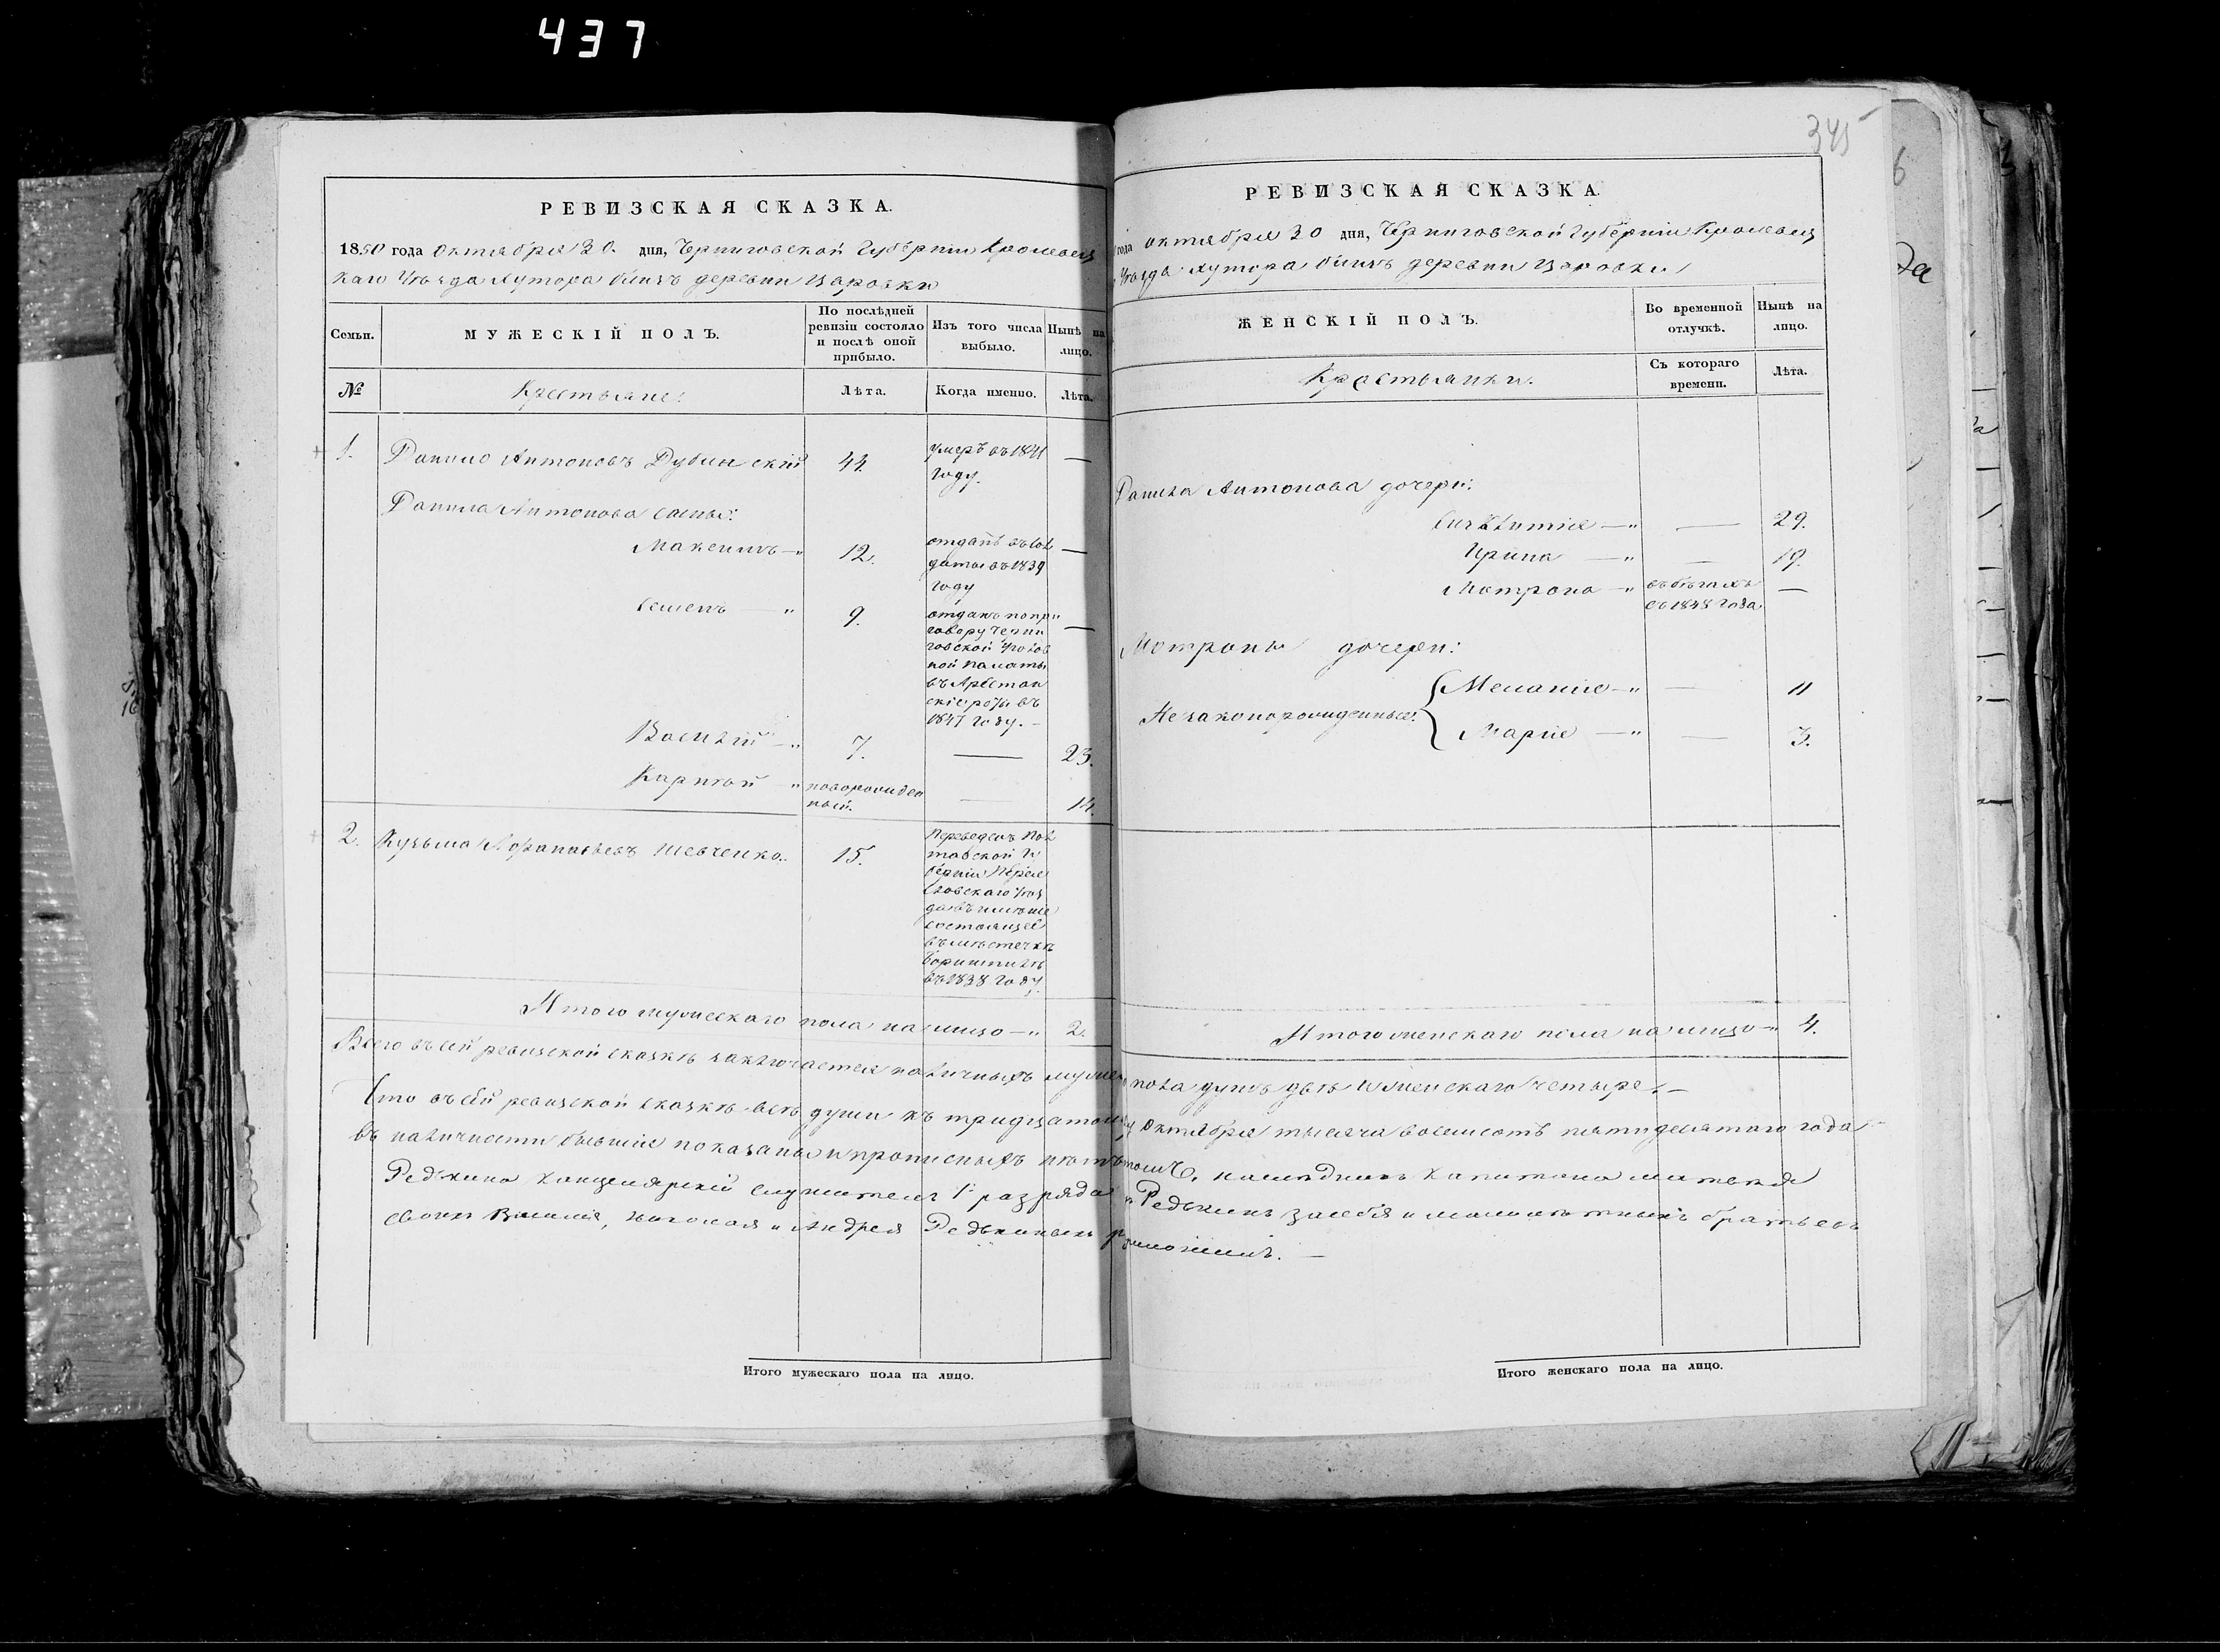 437
345
РЕВИЗСКАЯ СКАЗКА.
1850 года Октября 30. дня, Черниговской Губерніи Кролевец
каго Уѣзда Хутора близъ деревни Царовки
Семьи.
МУЖЕСКІЙ ПОЛЪ.
По послѣдней
ревизіи состояло
и послѣ оной
прибыло.
Изъ того числа
выбыло.
Нынѣ на
лицо.
№
Крестьяне:
Лѣта.
Когда именно.
Лѣта.
1.
Данило Антоновъ Дубинскій
44.
умеръ въ 1841
году.
—
Данила Антонова сыны:
Максимъ — "
12.
отданъ въ сол
даты въ 1839
году
—
Семенъ — "
9.
отданъ по при
говору Черни
говской Уголов
ной палаты
въ Арестан
скіе роты въ
1847 году. —
—
Василій — "
7.
—
23.
Карпъ "
новорожден
ный.
—
14.
2.
Кузьма Афанасьевъ Шевченко.
15.
Переведенъ Пол
тавской Гу
берніи Перея
славскаго Уѣз
да въ имѣніе
состоящее
въ мѣстечкѣ
въ 1838 году.
Итого мужескаго пола на лицо — "
2.
РЕВИЗСКАЯ СКАЗКА.
года Октября 30 дня, Черниговской Губерніи Кролевец
Уѣзда Хутора близъ деревни Царовки
ЖЕНСКІЙ ПОЛЪ.
Во временной
отлучкѣ.
Нынѣ на
лицо.
Крестьянки.
Съ котораго
времени.
Лѣта.
Данила Антонова дочери:
— "
—
29.
Ирина — "
—
19.
Мотрона — "
въ бѣгахъ
съ 1848 года
—
Мотроны дочери:
Незаконорожденные:
Меланія — "
—
11
Марія — "
—
3.
Итого женскаго пола на лицо — "
4.
Всего въ сей ревизской сказкѣ заключается наличныхъ муже пола душъ двѣ и женскаго четыре. —
Что въ сей ревизской сказкѣ всѣ души къ тридцатому Октября тысяча восемсотъ пятидесятаго года
въ наличности бывшіе показаны и прописныхъ нѣтъ въ томъ, наслѣдникъ Капитана
Редькина Канцелярскій служитель 1 разряда Редькинъ за себя и малолѣтныхъ братьевъ
своихъ Василія, Николая и Андрея Редькиныхъ
Итого мужескаго пола на лицо.
Итого женскаго пола на лицо.